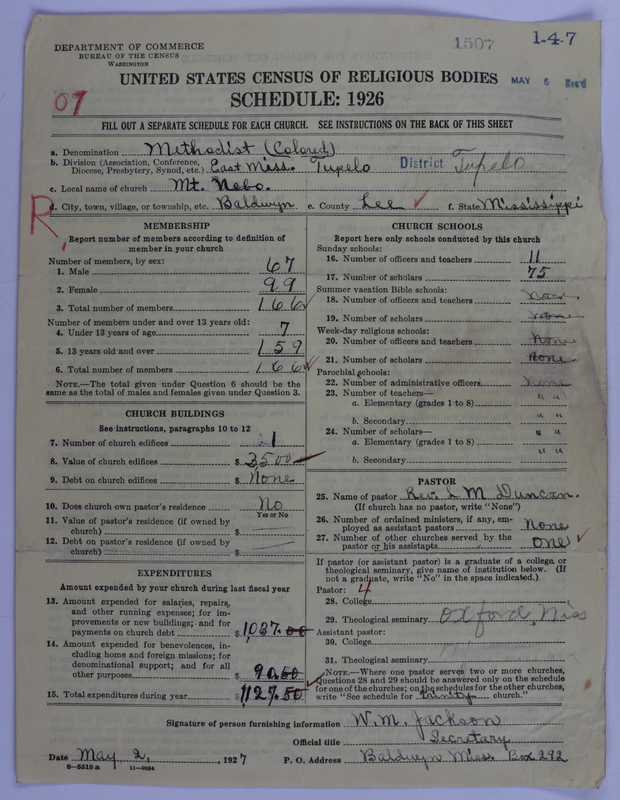 1507
1-4-7
DEPARTMENT OF COMMERCE
BUREAU OF THE CENSUS
WASHINGTON
MAY 6 Rec'd
UNITED STATES CENSUS OF RELIGIOUS BODIES
SCHEDULE: 1926
07
FILL OUT A SEPARATE SCHEDULE FOR EACH CHURCH. SEE INSTRUCTIONS ON THE BACK OF THIS SHEET
a. Denomination Methodist (Colored)
b. Division (Association, Conference, Diocese, Presbytery, Synod, etc.) East Miss. Tupelo District Tupelo
c. Local name of church Mt. Nebo.
d. City, town, village, or township, etc. Baldwyn e. County Lee f. State Mississippi
R
MEMBERSHIP
Report number of members according to definition of
member in your church
Number of members, by sex:
1. Male 67
2. Female 99
3. Total number of members 166
Number of members under and over 13 years old:
4. Under 13 years of age 7
5. 13 years old and over 159
6. Total number of members 166
NOTE.—The total given under Question 6 should be the
same as the total of males and females given under Question 3.
CHURCH BUILDINGS
See instructions, paragraphs 10 to 12
7. Number of church edifices 1
8. Value of church edifices $ 3500
9. Debt on church edifices $ None
10. Does church own pastor's residence No
Yes or No
11. Value of pastor's residence (if owned by
church) $
12. Debt on pastor's residence (if owned by
church) $
EXPENDITURES
Amount expended by your church during last fiscal year
13. Amount expended for salaries, repairs,
and other running expenses; for im-
provements or new buildings; and for
payments on church debt $ 1,037.00
14. Amount expended for benevolences, in-
cluding home and foreign missions; for
denominational support; and for all
other purposes $ 90.50
15. Total expenditures during year $ 1127.50
CHURCH SCHOOLS
Report here only schools conducted by this church
Sunday schools:
16. Number of officers and teachers 11
17. Number of scholars 75
Summer vacation Bible schools:
18. Number of officers and teachers none
19. Number of scholars none
Week-day religious schools:
20. Number of officers and teachers None
21. Number of scholars None
Parochial schools:
22. Number of administrative officers None
23. Number of teachers—
a. Elementary (grades 1 to 8) " "
b. Secondary " "
24. Number of scholars— " "
a. Elementary (grades 1 to 8) " "
b. Secondary
PASTOR
25. Name of pastor Rev. L M Duncan.
(If church has no pastor, write "None")
26. Number of ordained ministers, if any, em-
ployed as assistant pastors None
27. Number of other churches served by the
pastor or his assistants one
If pastor (or assistant pastor) is a graduate of a college or
theological seminary, give name of institution below. (If
not a graduate, write "No" in the space indicated.)
Pastor: 4
28. College
29. Theological seminary Oxford, Miss
Assistant pastor:
30. College
31. Theological seminary
NOTE.—Where one pastor serves two or more churches,
Questions 28 and 29 should be answered only on the schedule
for one of the churches; on the schedules for the other churches,
write "See schedule for Trinity church."
Signature of person furnishing information W. M. Jackson
Official title Secretary
Date May 2, 1927 P. O. Address Baldwyn Miss. Box 292
8-5515a 11-9054